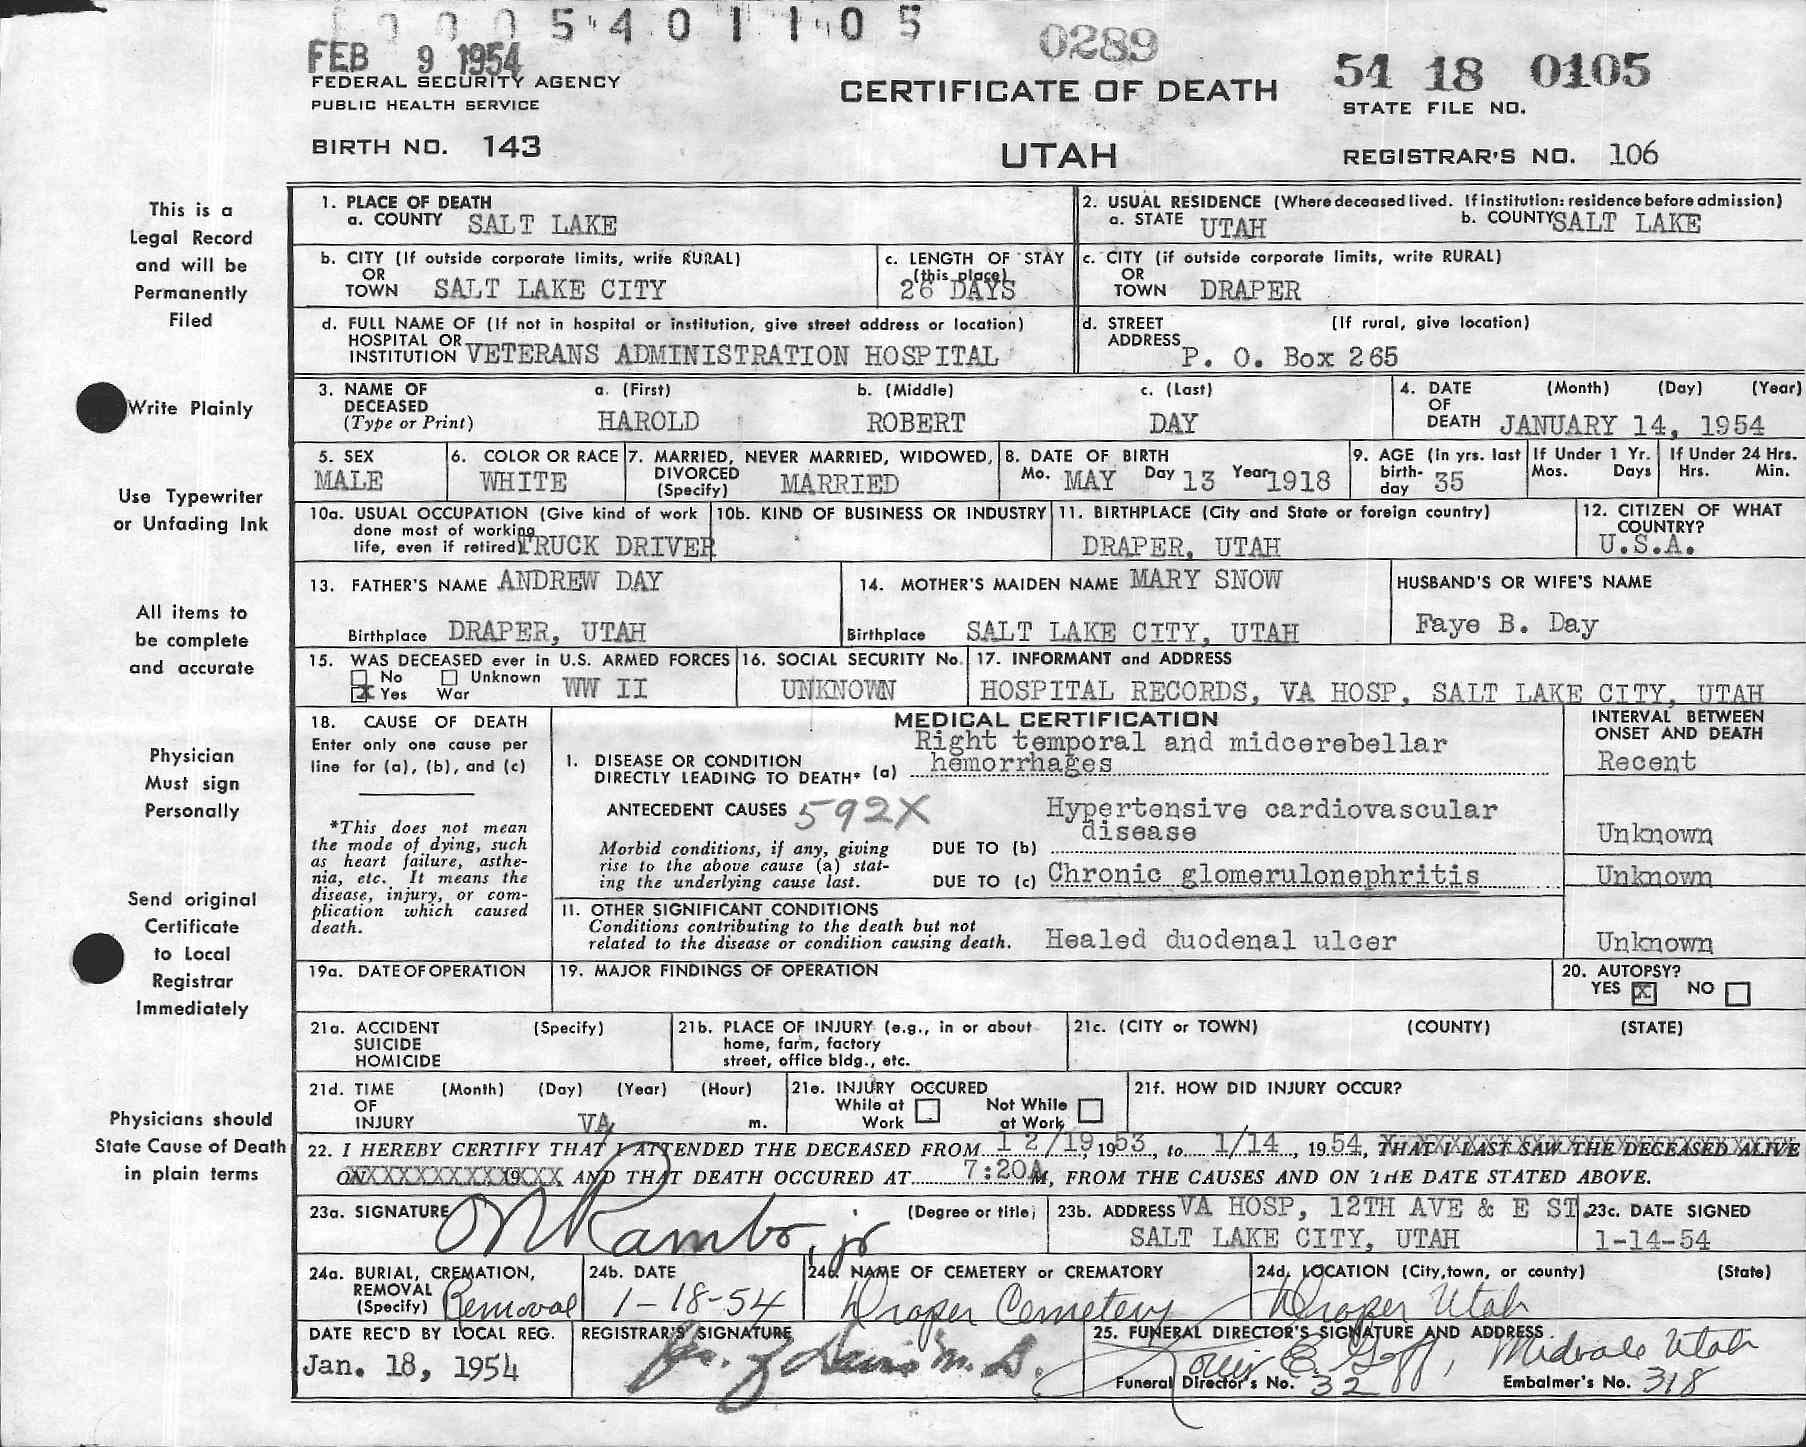 0 0 0 5 4 0 1 1 0 5
FEB 9 1954
0289
54 18 0105
FEDERAL SECURITY AGENCY
PUBLIC HEALTH SERVICE
CERTIFICATE OF DEATH
STATE FILE NO.
BIRTH NO. 143
UTAH
REGISTRAR'S NO. 106
This is a
Legal Record
and will be
Permanently
Filed
Write Plainly
Use Typewriter
or Unfading Ink
All items to
be complete
and accurate
Physician
Must sign
Personally
Send original
Certificate
to Local
Registrar
Immediately
Physicians should
State Cause of Death
in plain terms
1. PLACE OF DEATH
a. COUNTY SALT LAKE
2. USUAL RESIDENCE (Where deceased lived. If institution: residence before admission)
a. STATE UTAH b. COUNTY SALT LAKE
b. CITY (If outside corporate limits, write RURAL)
OR
TOWN SALT LAKE CITY
c. LENGTH OF STAY
(this place)
26 DAYS
c. CITY (if outside corporate limits, write RURAL)
OR
TOWN DRAPER
d. FULL NAME OF (If not in hospital or institution, give street address or location)
HOSPITAL OR
INSTITUTION VETERANS ADMINISTRATION HOSPITAL
d. STREET (If rural, give location)
ADDRESS P. O. Box 265
3. NAME OF a. (First) b. (Middle) c. (Last)
DECEASED
(Type or Print) HAROLD ROBERT DAY
4. DATE (Month) (Day) (Year)
OF
DEATH JANUARY 14, 1954
5. SEX
MALE
6. COLOR OR RACE
WHITE
7. MARRIED, NEVER MARRIED, WIDOWED,
DIVORCED
(Specify) MARRIED
8. DATE OF BIRTH
Mo. MAY Day 13 Year 1918
9. AGE (In yrs. last
birth-
day 35
If Under 1 Yr.
Mos. Days
If Under 24 Hrs.
Hrs. Min.
10a. USUAL OCCUPATION (Give kind of work
done most of working
life, even if retired) TRUCK DRIVER
10b. KIND OF BUSINESS OR INDUSTRY
11. BIRTHPLACE (City and State or foreign country)
DRAPER, UTAH
12. CITIZEN OF WHAT
COUNTRY?
U.S.A.
13. FATHER'S NAME ANDREW DAY
Birthplace DRAPER, UTAH
14. MOTHER'S MAIDEN NAME MARY SNOW
Birthplace SALT LAKE CITY, UTAH
HUSBAND'S OR WIFE'S NAME
Faye B. Day
15. WAS DECEASED ever in U.S. ARMED FORCES
No Unknown
X Yes War WW II
16. SOCIAL SECURITY No.
UNKNOWN
17. INFORMANT and ADDRESS
HOSPITAL RECORDS, VA HOSP, SALT LAKE CITY, UTAH
18. CAUSE OF DEATH
Enter only one cause per
line for (a), (b), and (c)
*This does not mean
the mode of dying, such
as heart failure, asthe-
nia, etc. It means the
disease, injury, or com-
plication which caused
death.
MEDICAL CERTIFICATION
INTERVAL BETWEEN
ONSET AND DEATH
Right temporal and midcerebellar
I. DISEASE OR CONDITION
DIRECTLY LEADING TO DEATH* (a) hemorrhages Recent
ANTECEDENT CAUSES 592X
Hypertensive cardiovascular
disease
Morbid conditions, if any, giving
rise to the above cause (a) stat-
ing the underlying cause last.
DUE TO (b) Unknown
DUE TO (c) Chronic glomerulonephritis Unknown
II. OTHER SIGNIFICANT CONDITIONS
Conditions contributing to the death but not
related to the disease or condition causing death. Healed duodenal ulcer Unknown
19a. DATE OF OPERATION
19. MAJOR FINDINGS OF OPERATION
20. AUTOPSY?
YES X NO
21a. ACCIDENT (Specify)
SUICIDE
HOMICIDE
21b. PLACE OF INJURY (e.g., in or about
home, farm, factory
street, office bldg., etc.
21c. (CITY or TOWN) (COUNTY) (STATE)
21d. TIME (Month) (Day) (Year) (Hour)
OF
INJURY VA m.
21e. INJURY OCCURED
While at Work Not While at Work
21f. HOW DID INJURY OCCUR?
22. I HEREBY CERTIFY THAT I ATTENDED THE DECEASED FROM 12/19, 1953, to 1/14, 1954, THAT I LAST SAW THE DECEASED ALIVE
ON XXXXXXXXXX 19XXX AND THAT DEATH OCCURED AT 7:20A M, FROM THE CAUSES AND ON THE DATE STATED ABOVE.
23a. SIGNATURE (Degree or title)
Rambo, jr
23b. ADDRESS VA HOSP, 12TH AVE & E ST.
SALT LAKE CITY, UTAH
23c. DATE SIGNED
1-14-54
24a. BURIAL, CREMATION,
REMOVAL
(Specify) Removal
24b. DATE
1-18-54
24c. NAME OF CEMETERY or CREMATORY
Draper Cemetery
24d. LOCATION (City, town, or county) (State)
Draper Utah
DATE REC'D BY LOCAL REG.
Jan. 18, 1954
REGISTRAR'S SIGNATURE
M.D.
25. FUNERAL DIRECTOR'S SIGNATURE AND ADDRESS.
E. Goff, Midvale Utah
Funeral Director's No. 32 Embalmer's No. 318